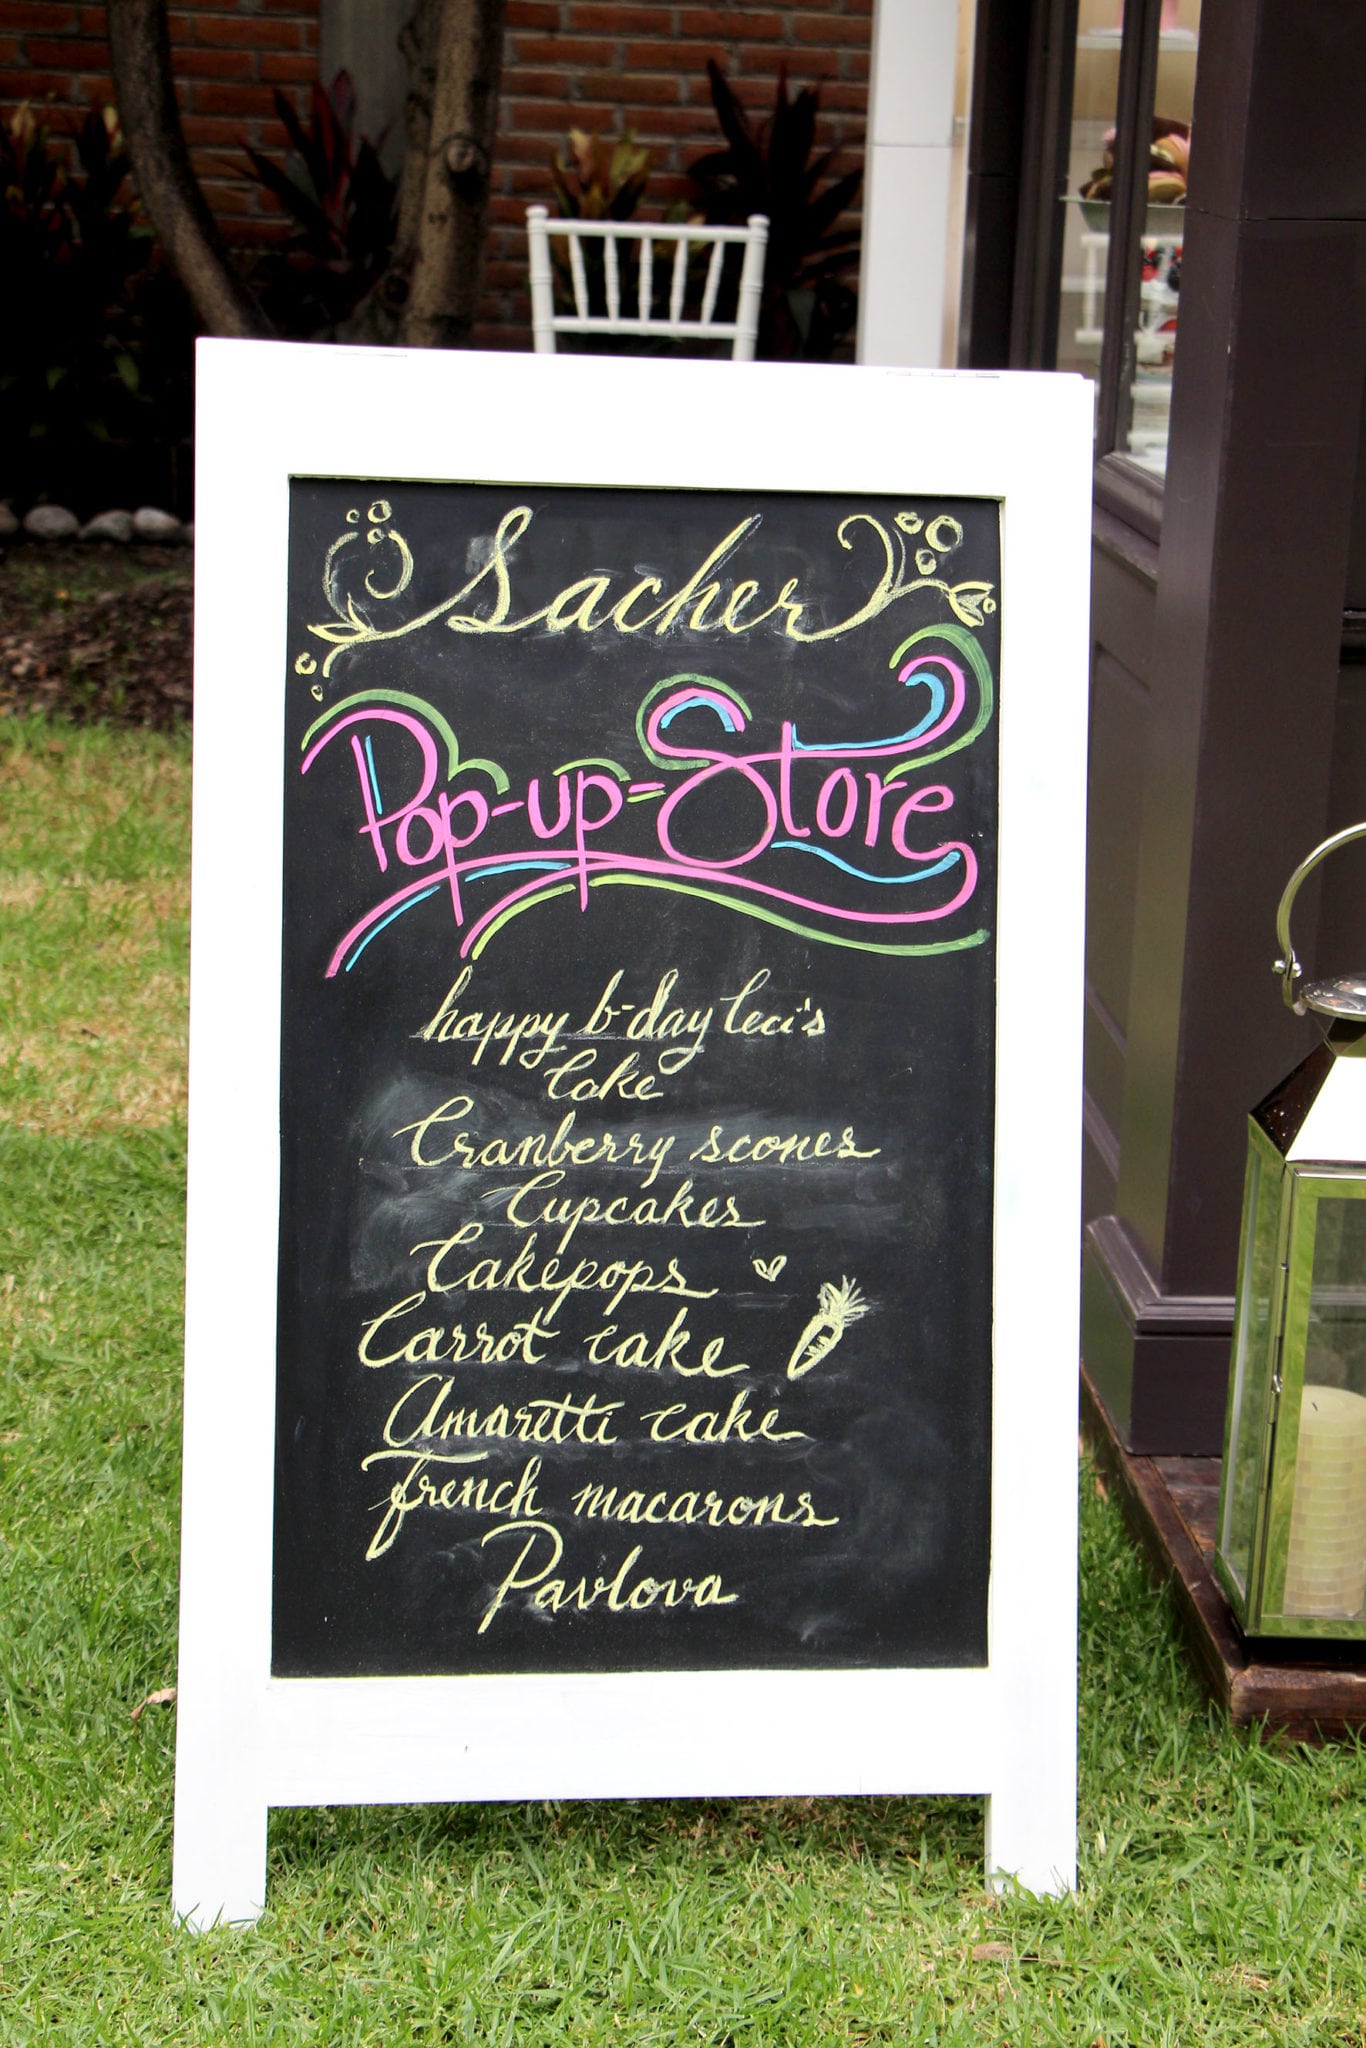 Sacher
Pop-up-Store
happy b-day Leci's
Cake
Cranberry scones
Cupcakes
Cakepops
Carrot cake
Amaretti cake
French macarons
Pavlova